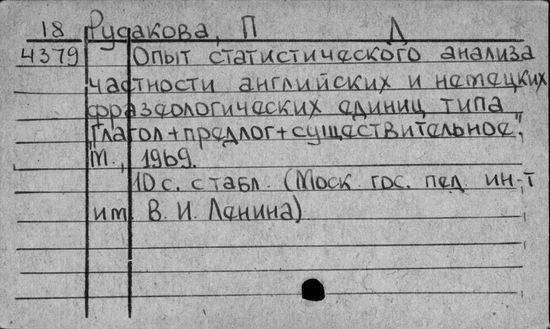 18 Рудакова, Л Л
4379 Опыт статистического анализа
частности английских и немецких
фразеологических единиц типа
"глагол+предлог+существительное".
М., 1969.
10 с. с табл. (Моск. гос. пед. ин-т
им. В. И. Ленина)